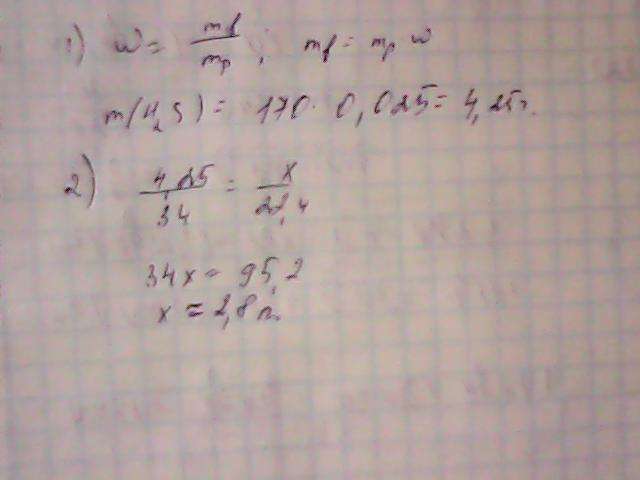 1) w = mв / mр ; mв = mр w
m(H₂S) = 170 · 0,025 = 4,25г.
2) 4,25 / 34 = x / 22,4
34x = 95,2
x = 2,8л.